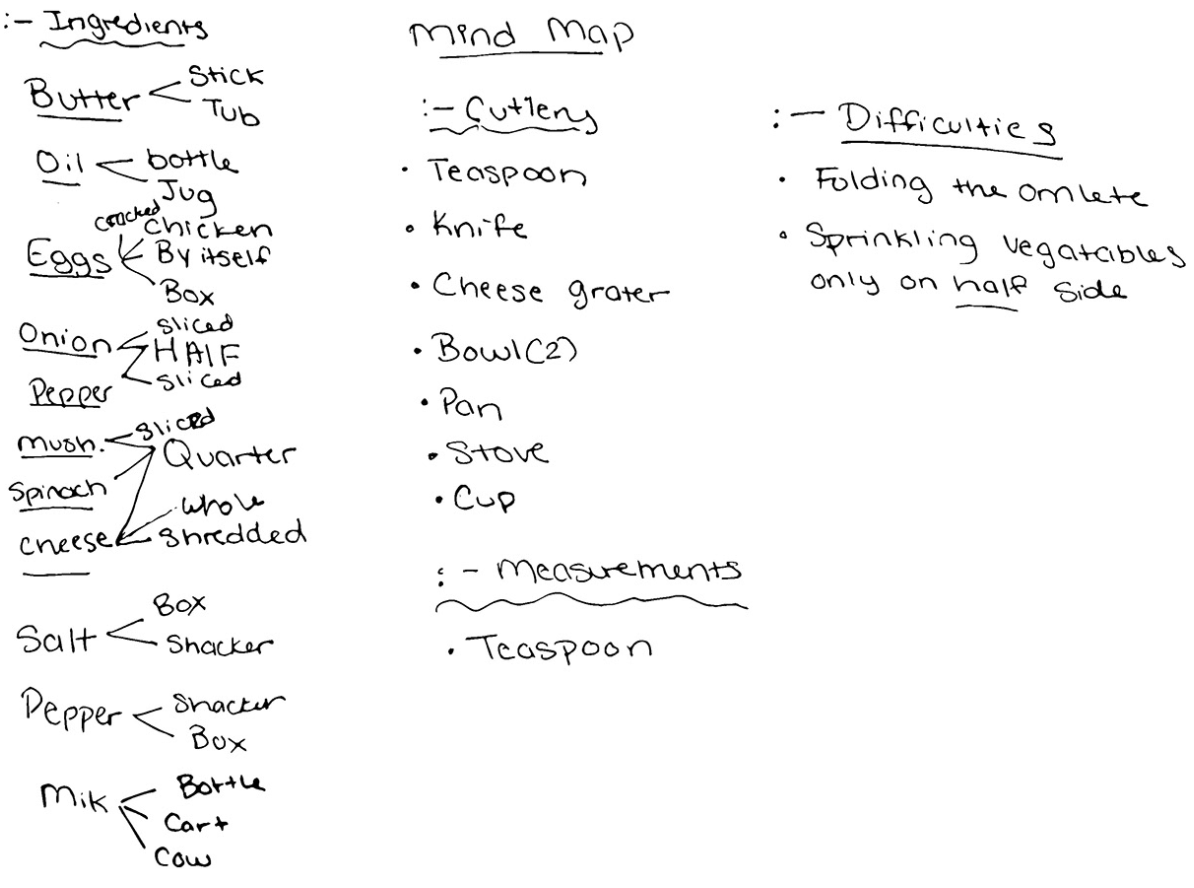 :- Ingredients
Butter Stick
Tub
Oil bottle
Jug
Eggs cracked chicken
By itself
Box
Onion sliced
HAlF
Pepper sliced
mush. sliced
Quarter
Spinach
cheese whole
shredded
Salt Box
Shacker
Pepper Shacker
Box
Mik Bottle
Cart
Cow
Mind Map
:- Cutlery
• Teaspoon
• Knife
• Cheese grater
• Bowl(2)
• Pan
• Stove
• Cup
:- Measurements
• Teaspoon
:- Difficulties
• Folding the omlete
• Sprinkling vegatables
only on half side